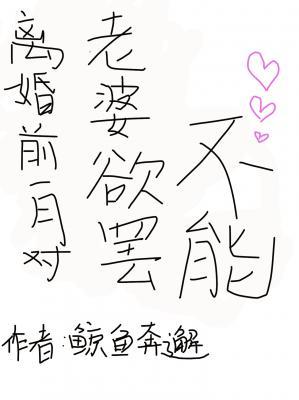 离婚前一月对
老婆欲罢
不能
作者:鲸鱼奔邂